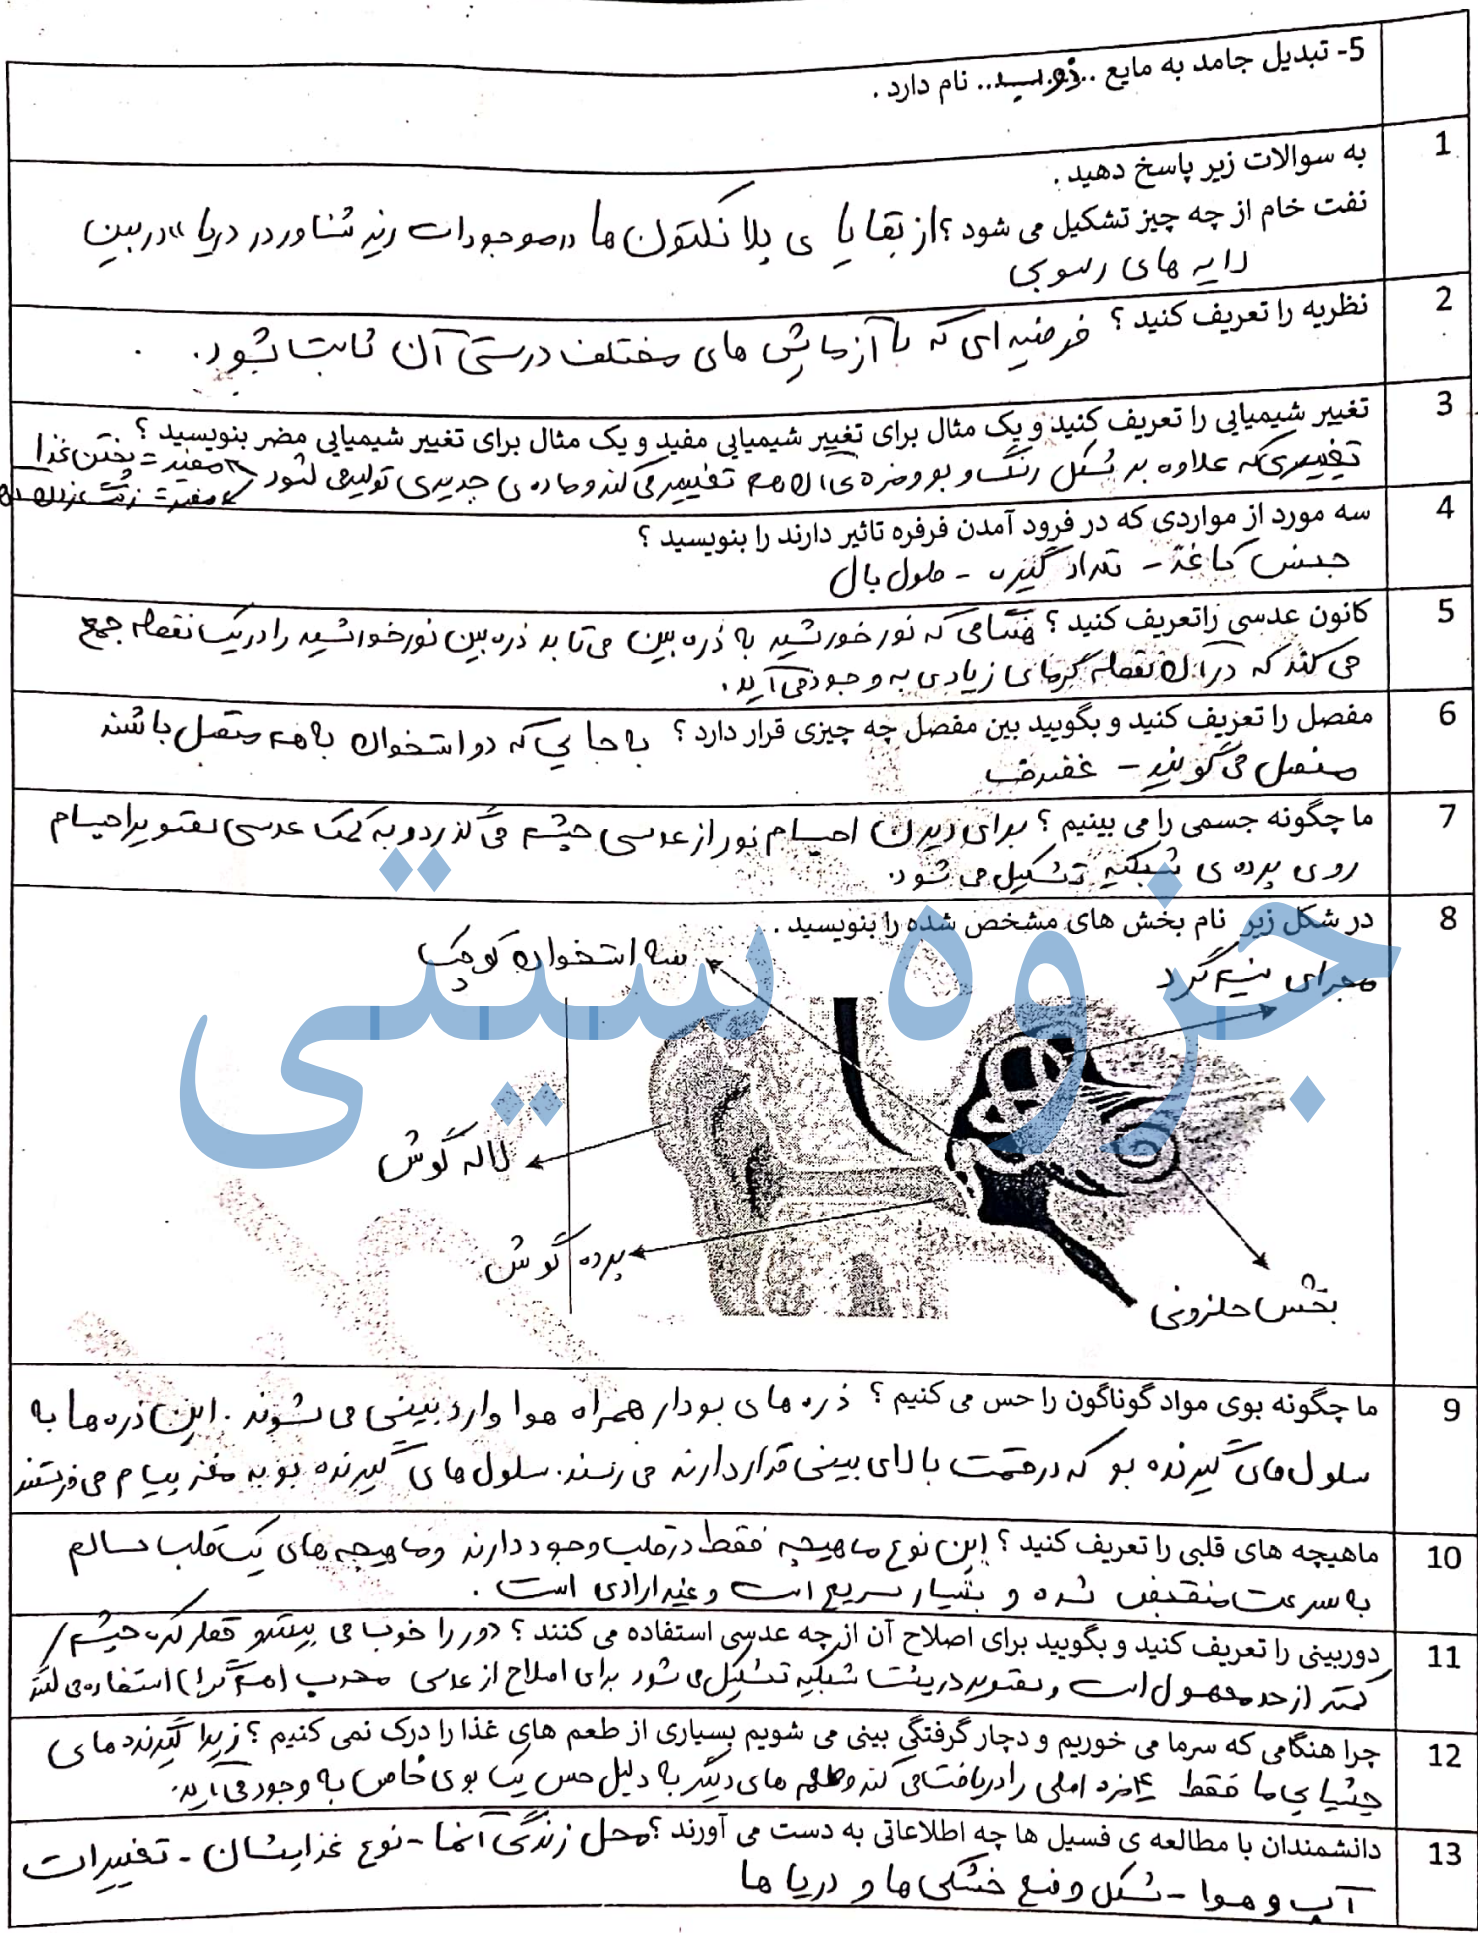 5- تبدیل جامد به مایع ..ذوب.. نام دارد .
1
به سوالات زیر پاسخ دهید .
نفت خام از چه چیز تشکیل می شود ؟ از بقایا ی پلانکتون ها «موجودات ریز شناور در دریا» در بین
لایه های رسوبی
2
نظریه را تعریف کنید ؟ فرضیه ای که با آزمایش های مختلف درستی آن ثابت شود.
3
تغییر شیمیایی را تعریف کنید و یک مثال برای تغییر شیمیایی مفید و یک مثال برای تغییر شیمیایی مضر بنویسید ؟
مفید = پختن غذا
تغییری که علاوه بر شکل رنگ و بو و مزه ی آن هم تغییر می کند و ماده ی جدیدی تولید می شود
4
سه مورد از مواردی که در فرود آمدن فرفره تاثیر دارند را بنویسید ؟
جنس کاغذ - تعداد گیره - طول بال
5
کانون عدسی راتعریف کنید ؟ هنگامی که نور خورشید به ذره بین می تابد ذره بین نور خورشید را در یک نقطه جمع
می کند که در آن نقطه گرمای زیادی به وجود می آید.
6
مفصل را تعریف کنید و بگویید بین مفصل چه چیزی قرار دارد ؟ به جا یی که دو استخوان به هم متصل باشند
مفصل می گویند - غضروف
7
ما چگونه جسمی را می بینیم ؟ برای دیدن اجسام نور از عدسی چشم می گذرد و به کمک عدسی تصویر اجسام
روی پرده ی شبکیه تشکیل می شود.
8
در شکل زیر نام بخش های مشخص شده را بنویسید .
سه استخوان کوچک
مجرای نیم گرد
لاله گوش
پرده گوش
بخش حلزونی
جزوه سیتی
9
ما چگونه بوی مواد گوناگون را حس می کنیم ؟ ذره های بودار همراه هوا وارد بینی می شوند . این ذره ها به
سلول های گیرنده بو که در قسمت بالای بینی قرار دارند می رسند. سلول های گیرنده بو به مغز پیام می فرستند
10
ماهیچه های قلبی را تعریف کنید ؟ این نوع ماهیچه فقط در قلب وجود دارند و ماهیچه های یک قلب سالم
به سرعت منقبض شده و بسیار سریع است و غیر ارادی است .
11
دوربینی را تعریف کنید و بگویید برای اصلاح آن از چه عدسی استفاده می کنند ؟ دور را خوب می بیند و قطر کره چشم
کمتر از حد معمول است و تصویر در پشت شبکیه تشکیل می شود برای اصلاح از عدسی محدب (همگرا) استفاده می کنند
12
چرا هنگامی که سرما می خوریم و دچار گرفتگی بینی می شویم بسیاری از طعم های غذا را درک نمی کنیم ؟ زیرا گیرنده های
چشایی ما فقط ۴ مزه اصلی را دریافت می کند و طعم های دیگر به دلیل حس یک بوی خاص به وجود می آید.
13
دانشمندان با مطالعه ی فسیل ها چه اطلاعاتی به دست می آورند ؟ محل زندگی آنها - نوع غذایشان - تغییرات
آب و هوا - شکل وضع خشکی ها و دریا ها